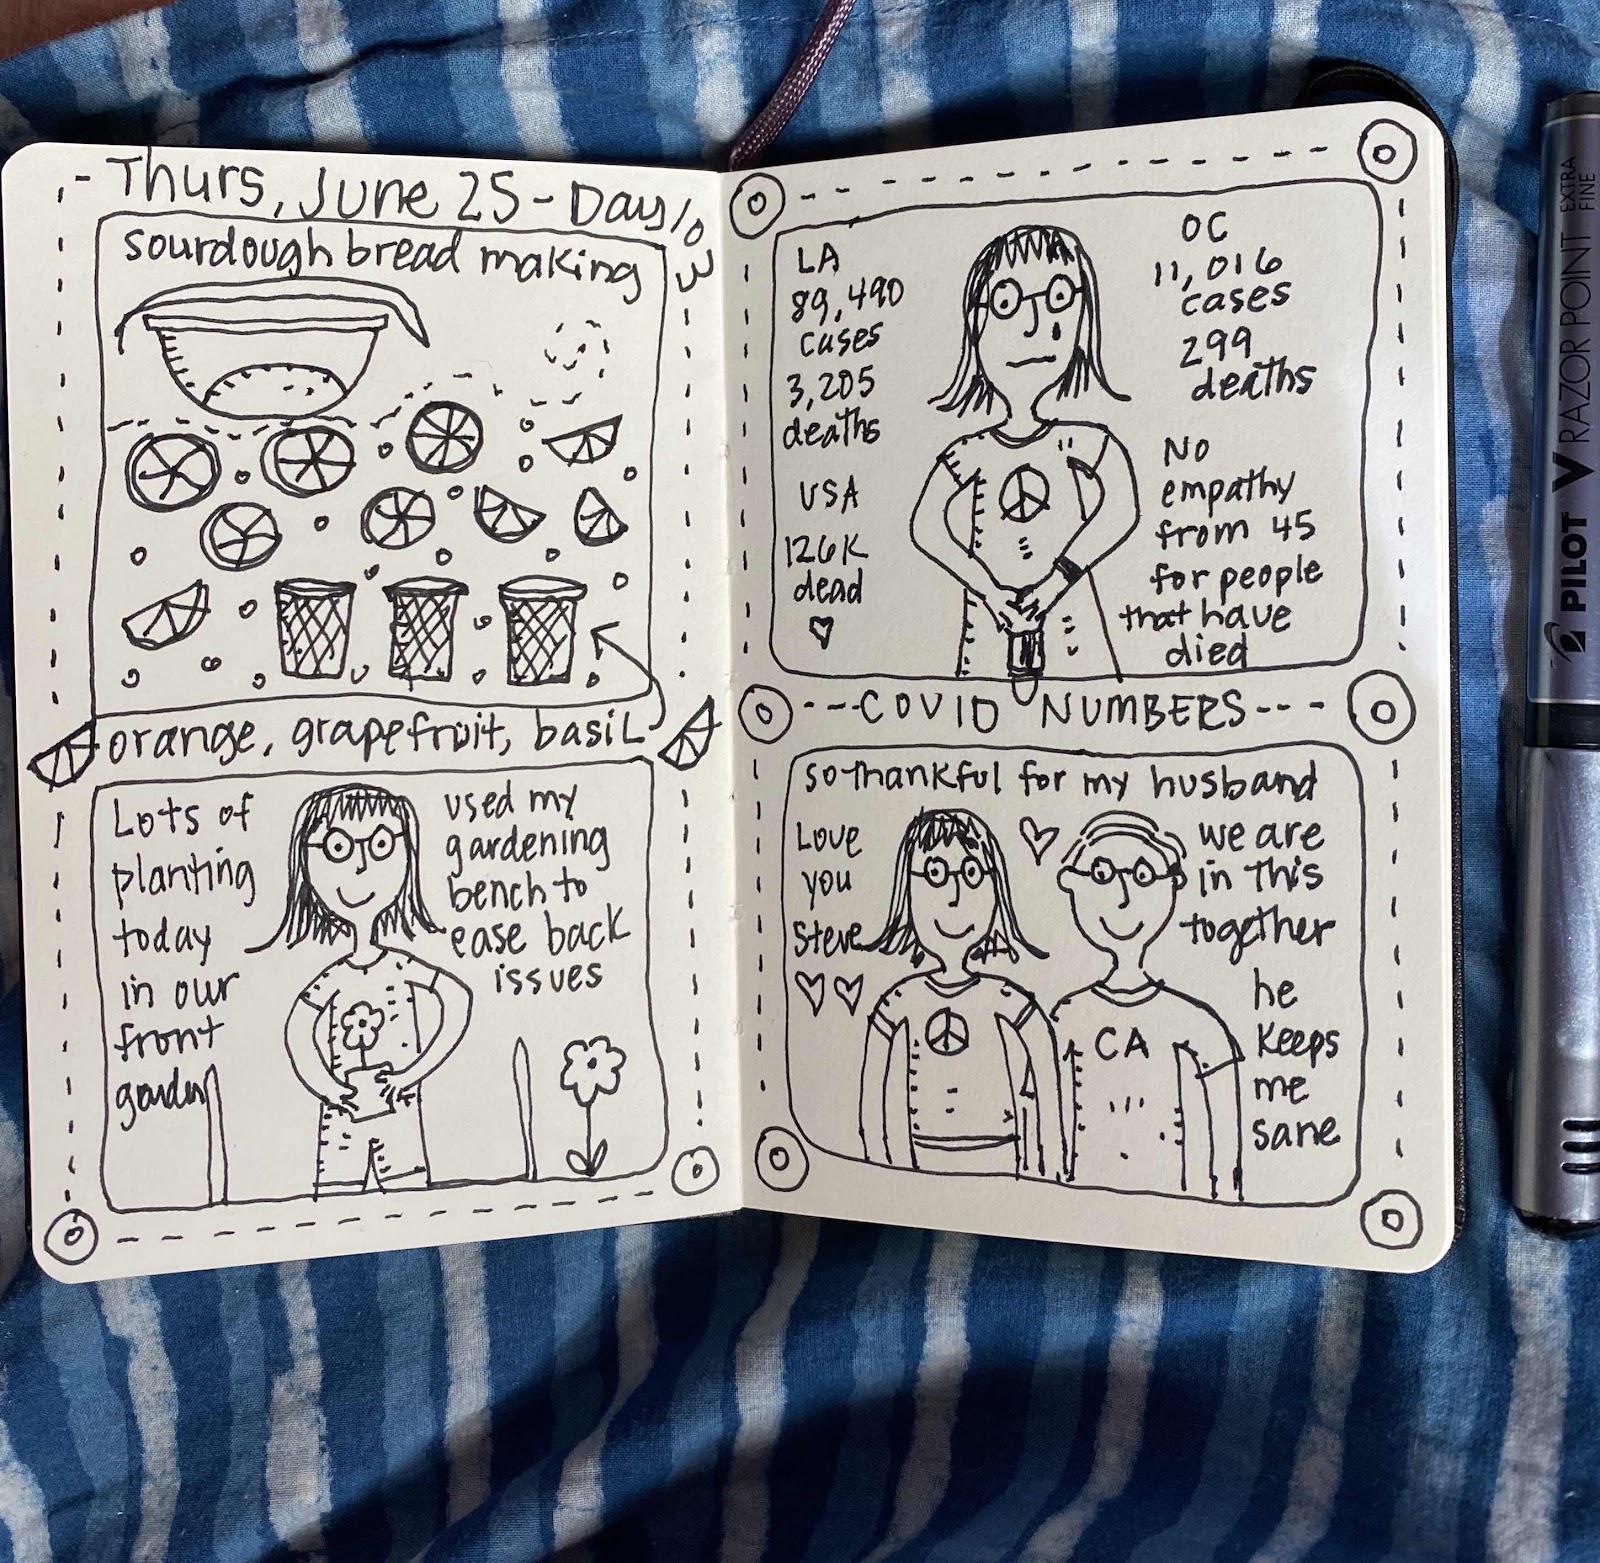 Thurs, June 25 - Day 103
sourdough bread making
orange, grapefruit, basil
Lots of
planting
today
in our
front
garden
used my
gardening
bench to
ease back
issues
LA
89,490
cases
3,205
deaths
USA
126K
dead
OC
11,016
cases
299
deaths
No
empathy
from 45
for people
that have
died
---COVID NUMBERS---
so thankful for my husband
Love
you
Steve
we are
in this
together
he
keeps
me
sane
CA
PILOT V RAZOR POINT EXTRA
FINE